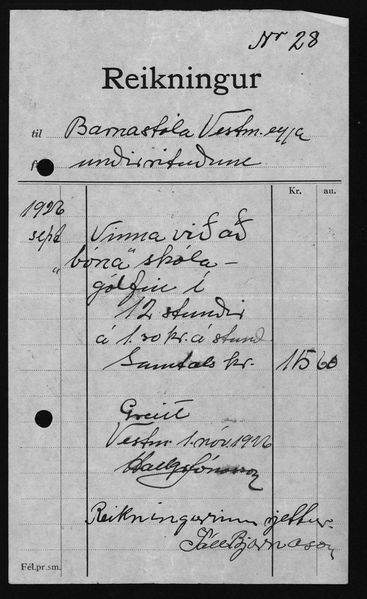 Nr 28
Reikningur
til Barnaskóla Vestm.eyja
undirrituðum
Kr. au.
1926
sept Vinna við að
„bóna" skóla-
gólfin í
12 stundir
á 1.30 kr. á stund
Samtals kr. 15 60
Greitt
Vestm. 1. nóv. 1926
Reikningurinn rjettur.
Páll Bjarnason
Fél.pr.sm.